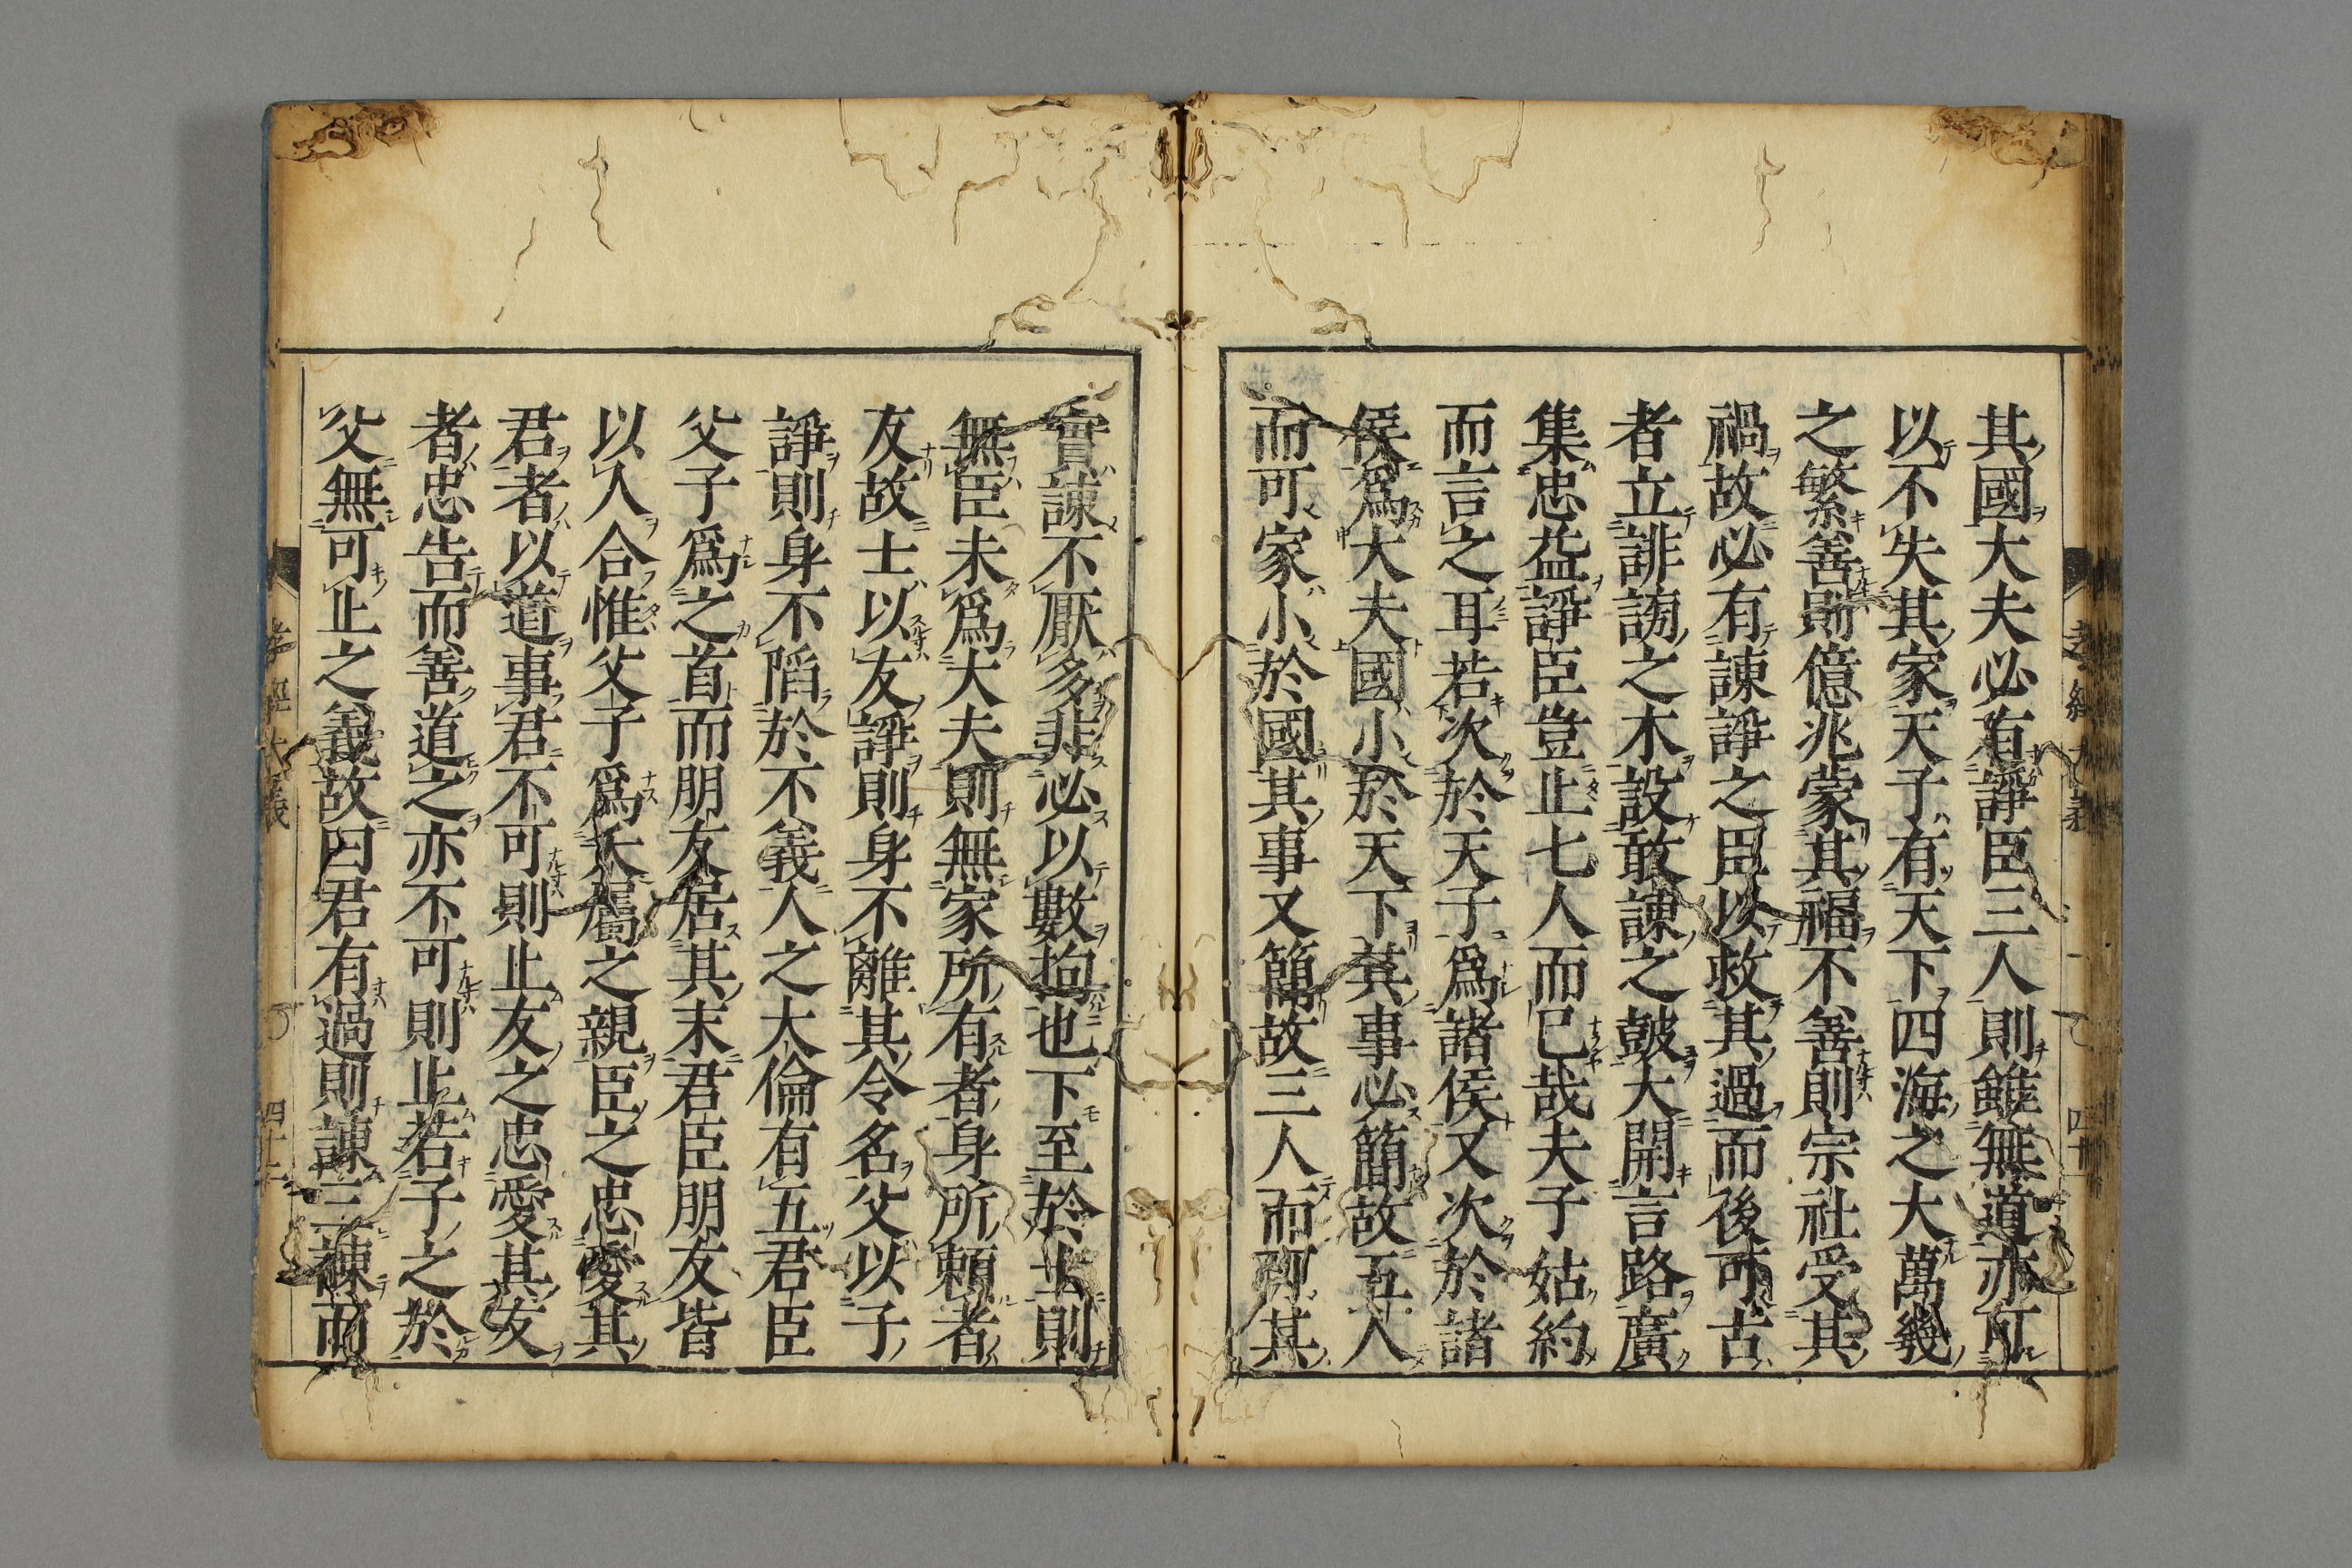 其國大夫必有諍臣三人則雖無道亦可
以不失其家天子有天下四海之大萬幾
之繁善則億兆蒙其福不善則宗社受其
禍故必有諫諍之臣以救其過而後可古
者立誹謗之木設敢諫之皷大開言路廣
集忠益諍臣豈止七人而已哉夫子姑約
而言之耳若次於天子爲諸侯又次於諸
侯爲大夫國小於天下其事必簡故五人
而可家小於國其事又簡故三人而可其
實諫不厭多非必以數拘也下至於士則
無臣未爲大夫則無家所有者身所賴者
友故士以友諍則身不離其令名父以子
諍則身不陷於不義人之大倫有五君臣
父子爲之首而朋友居其末君臣朋友皆
以人合惟父子爲天屬之親臣之忠愛其
君者以道事君不可則止友之忠愛其友
者忠告而善道之亦不可則止若子之於
父無可止之義故曰君有過則諫三諫而
孝經大義
四十二